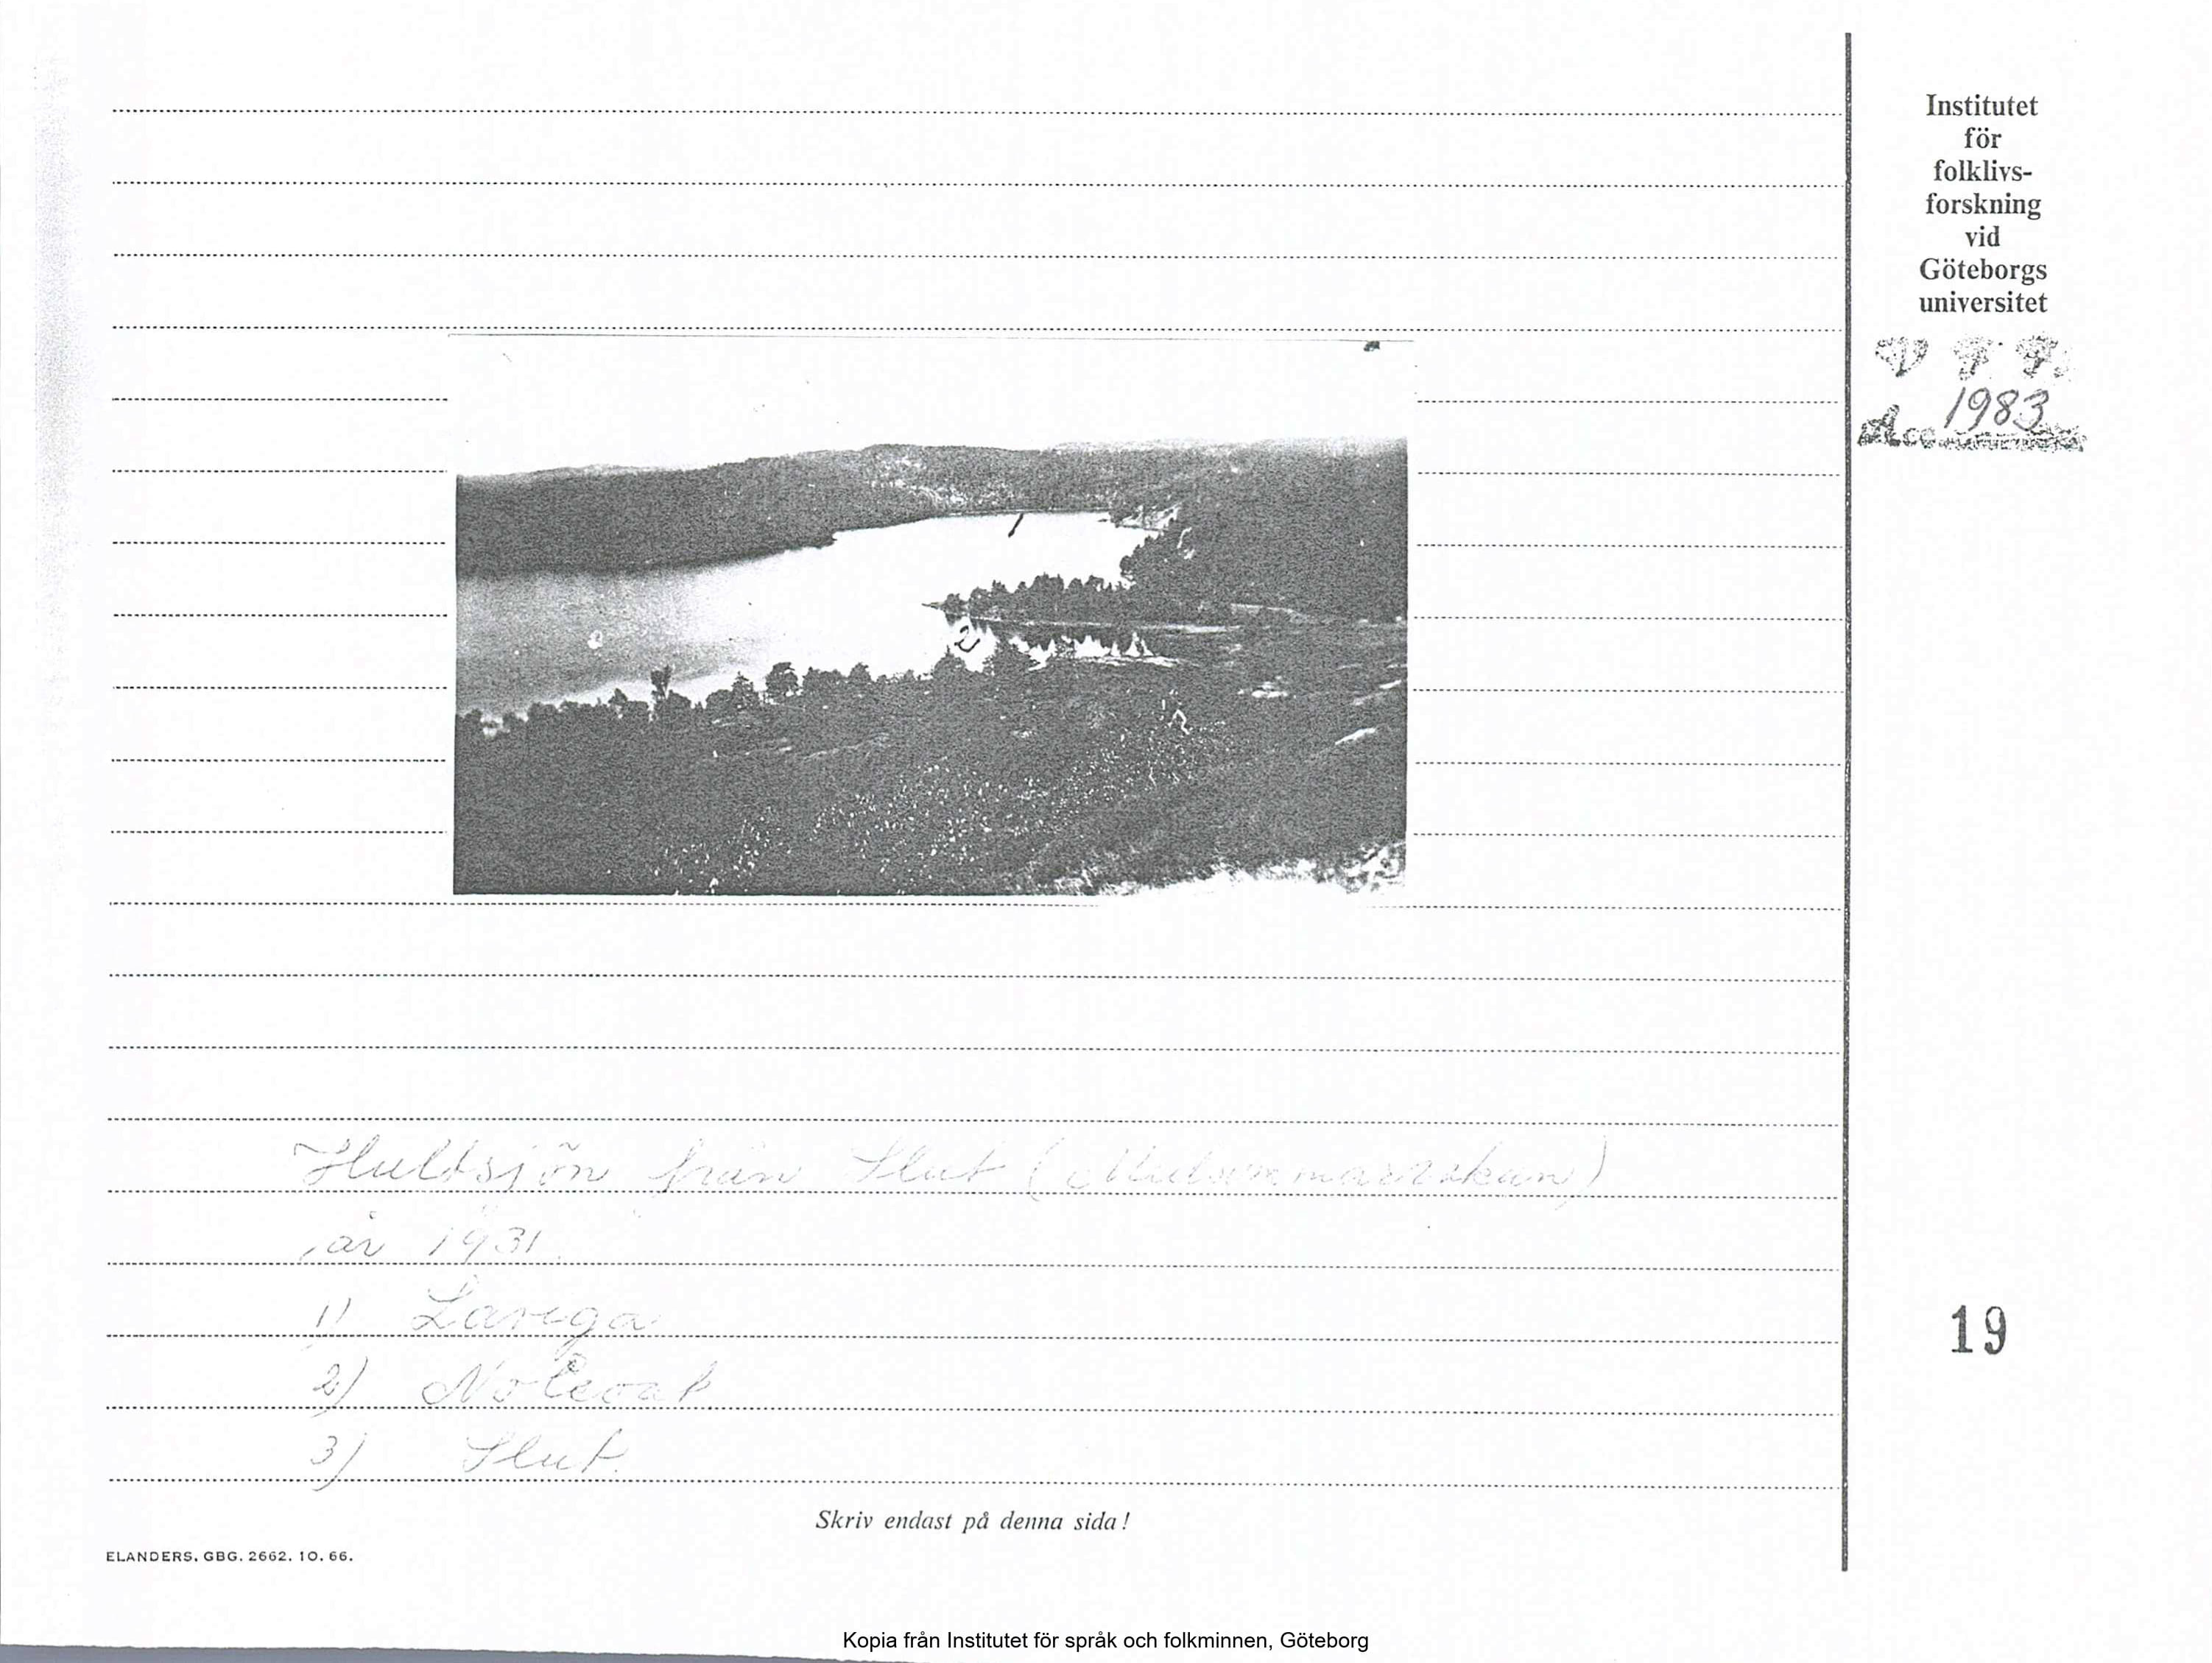 Institutet
för
folklivs-
forskning
vid
Göteborgs
universitet
V F F
1983
1
2
Hultsjön från Slut (Midsommarrskun)
år 1931.
1)
2)
3) Slut.
19
Skriv endast på denna sida!
ELANDERS. GBG. 2662. 10. 66.
Kopia från Institutet för språk och folkminnen, Göteborg